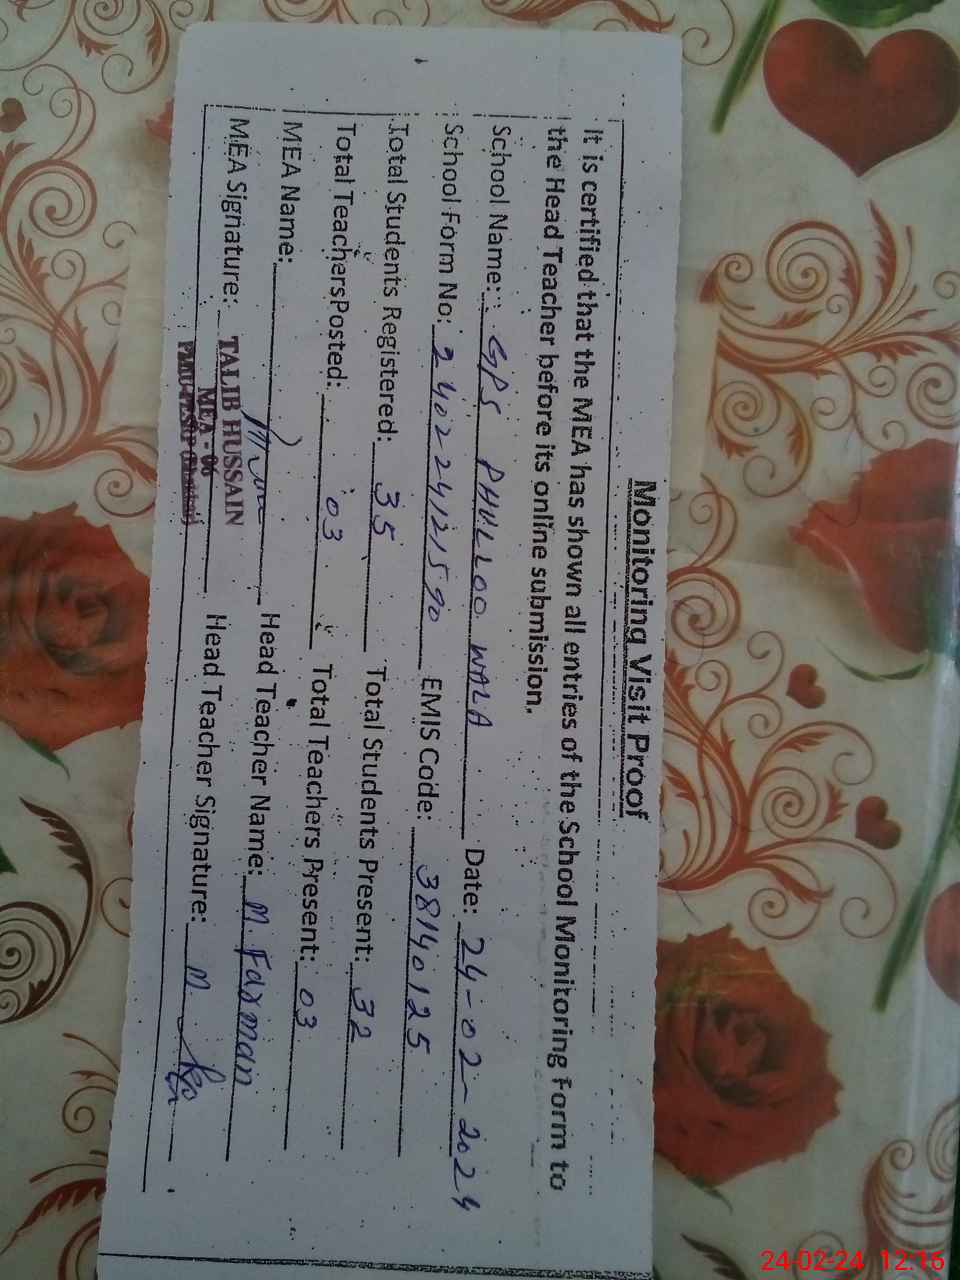 Monitoring Visit Proof
It is certified that the MEA has shown all entries of the School Monitoring Form to
the Head Teacher before its online submission.
School Name: GPS PHULLOO WALA Date: 24-02-2024
School Form No: 240224121590 EMIS Code: 38140125
Total Students Registered: 35 Total Students Present: 32
Total Teachers Posted: 03 Total Teachers Present: 03
MEA Name: Head Teacher Name: M. Farman
MEA Signature: Head Teacher Signature: M.
TALIB HUSSAIN
MEA - 06
24-02-24 12:16